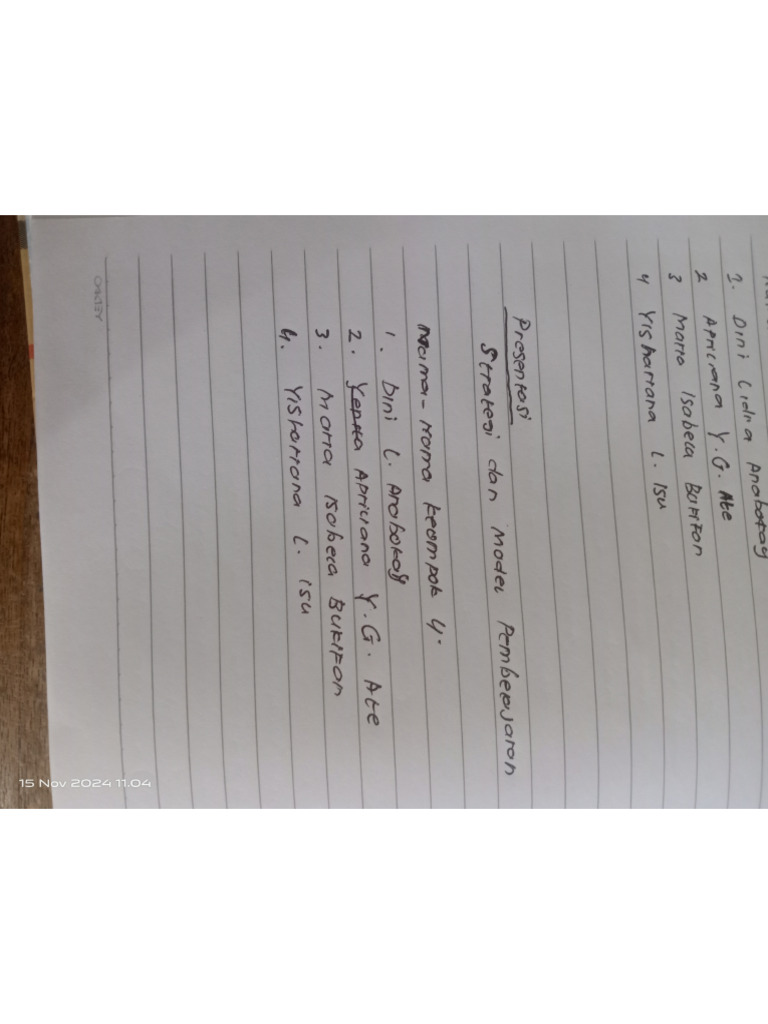 1. Dini Lidia Anabokay
2 Apriliana Y.G. Ate
3 Maria Isabela Bukifan
4 Yishariana L. Isu
Presentasi
Strategi dan Model Pembelajaran
Nama-nama keompok 4.
1. Dini L. Anabokay
2. Apriliana Y.G. Ate
3. Maria Isabela Bukifan
4. Yishariana L. Isu
15 Nov 2024 11.04